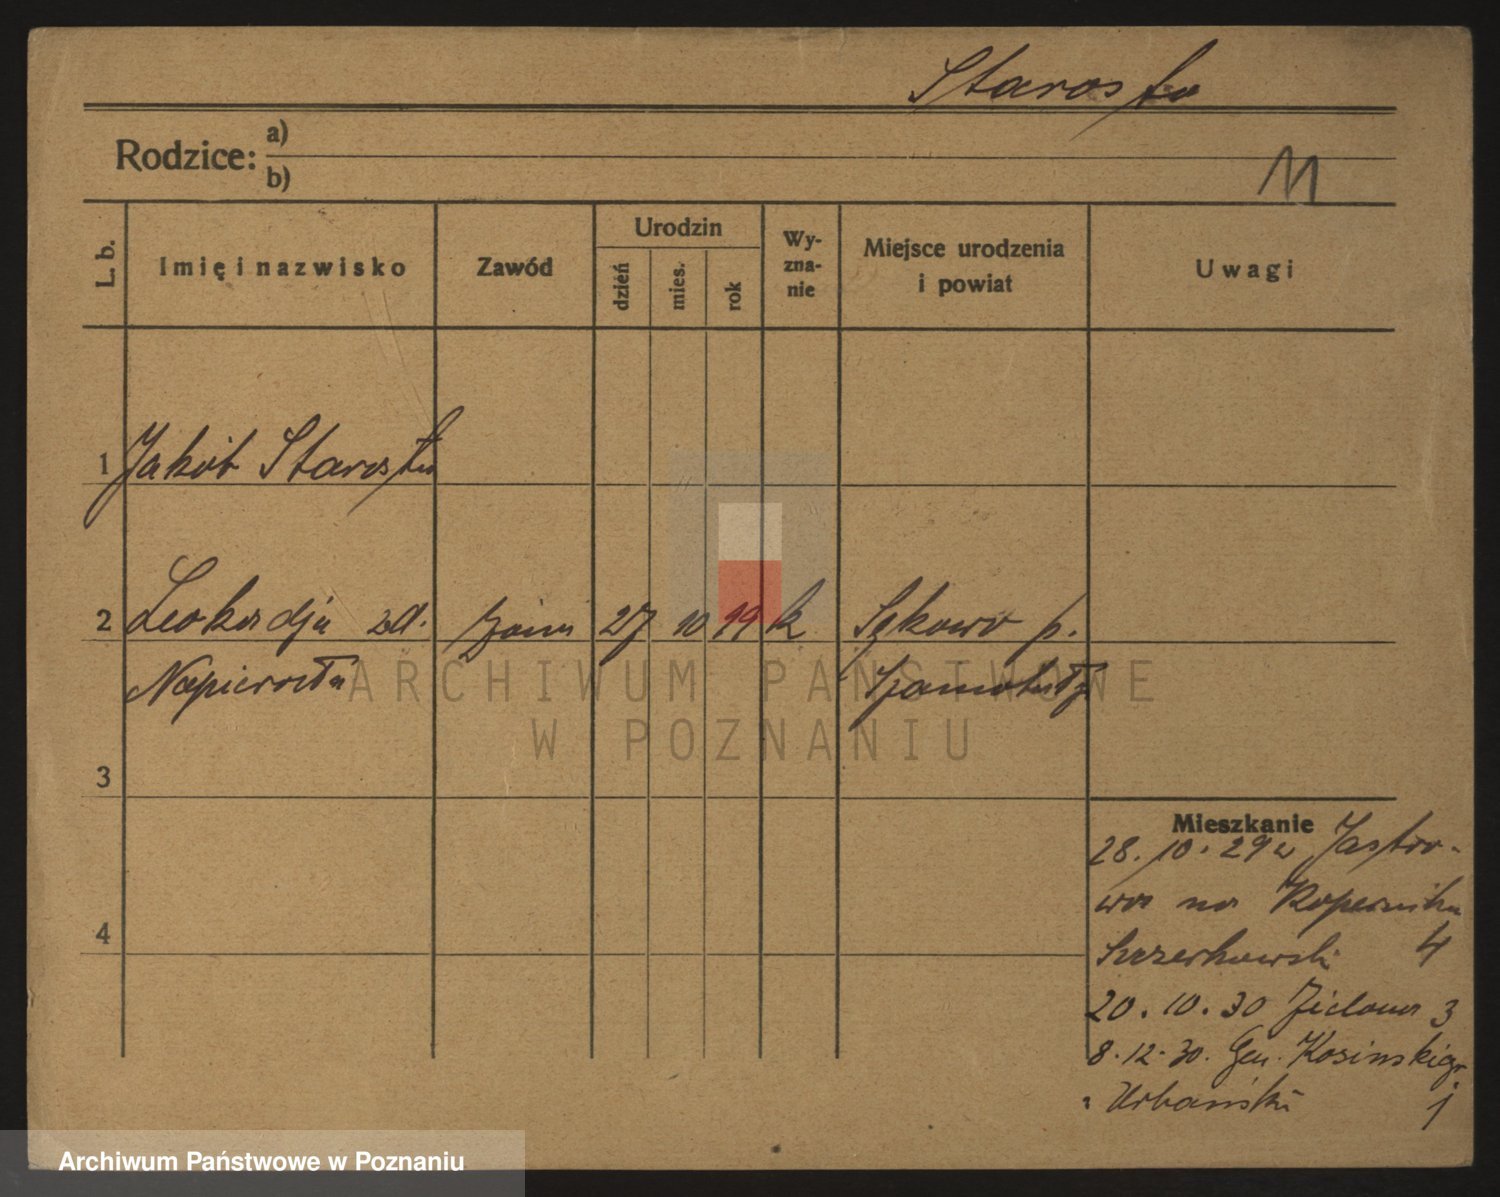 Starosta
Rodzice:
a)
b)
11
L. b.
Imię i nazwisko
Zawód
Urodzin
dzień
mies.
rok
Wy-
zna-
nie
Miejsce urodzenia
i powiat
Uwagi
1 Jakób Starosta
2 Leokadja zd. 27 10 99 k Sękowo p.
Napierała Szamotuły
3
Mieszkanie
28.10.29 z Jastro-
wa na Kopernika
4
4
Szczerkowski
20.10.30 Zielona 3
8.12.30. Gen. Kosińskiego
Urbański 1
ARCHIWUM PAŃSTWOWE
W POZNANIU
Archiwum Państwowe w Poznaniu